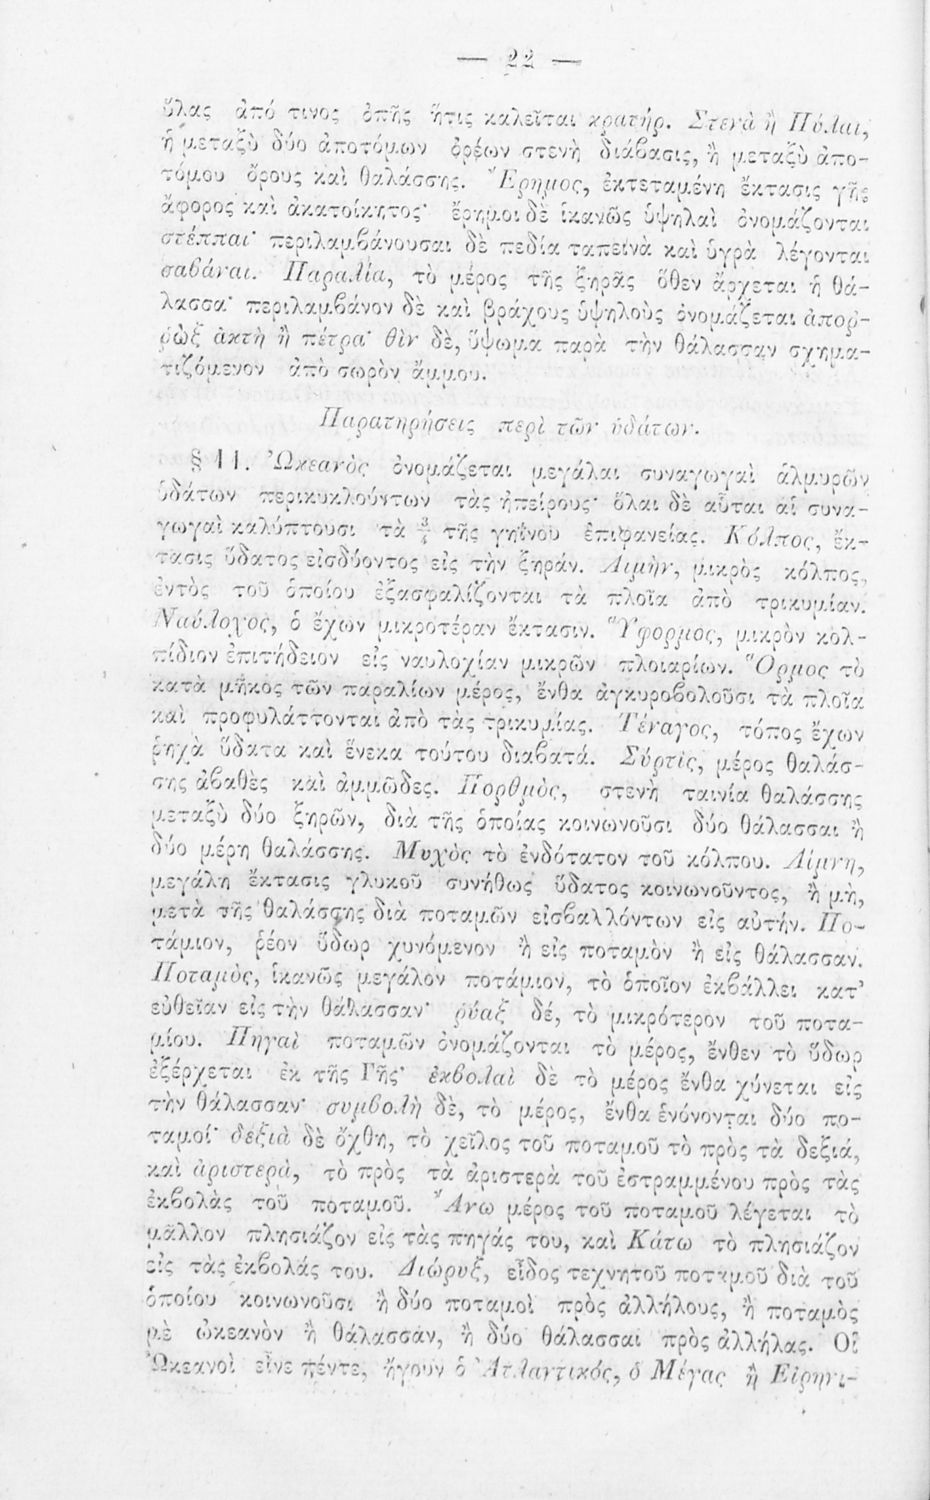 — 22 —
ὕλας ἀπό τινος ὀπῆς ἥτις καλεῖται κρατήρ. Στενὰ ἢ Πύλαι,
ἡ μεταξὺ δύο ἀποτόμων ὀρέων στενὴ διάβασις, ἢ μεταξὺ ἀπο-
τόμου ὄρους καὶ θαλάσσης. Ἔρημος, ἐκτεταμένη ἔκτασις γῆς
ἄφορος καὶ ἀκατοίκητος· ἔρημοι δὲ ἱκανῶς ὑψηλαὶ ὀνομάζονται
στέππαι· περιλαμβάνουσαι δὲ πεδία ταπεινὰ καὶ ὑγρὰ λέγονται
σαβάναι. Παραλία, τὸ μέρος τῆς ξηρᾶς ὅθεν ἄρχεται ἡ θά-
λασσα· περιλαμβάνον δὲ καὶ βράχους ὑψηλοὺς ὀνομάζεται ἀποῤ-
ῥὼξ ἀκτὴ ἢ πέτρα· θὶν δὲ, ὕψωμα παρὰ τὴν θάλασσαν σχημα-
τιζόμενον ἀπὸ σωρὸν ἄμμου.
Παρατηρήσεις περὶ τῶν ὑδάτων.
§ 11. Ὠκεανὸς ὀνομάζεται μεγάλαι συναγωγαὶ ἁλμυρῶν
ὑδάτων περικυκλούντων τὰς ἠπείρους· ὅλαι δὲ αὗται αἱ συνα-
γωγαὶ καλύπτουσι τὰ ¾ τῆς γηΐνου ἐπιφανείας. Κόλπος, ἔκ-
τασις ὕδατος εἰσδύοντος εἰς τὴν ξηράν. Λιμὴν, μικρὸς κόλπος,
ἐντὸς τοῦ ὁποίου ἐξασφαλίζονται τὰ πλοῖα ἀπὸ τρικυμίαν.
Ναύλοχος, ὁ ἔχων μικροτέραν ἔκτασιν. Ὕφορμος, μικρὸν κολ-
πίδιον ἐπιτήδειον εἰς ναυλοχίαν μικρῶν πλοιαρίων. Ὅρμος τὸ
κατὰ μῆκος τῶν παραλίων μέρος, ἔνθα ἀγκυροβολοῦσι τὰ πλοῖα
καὶ προφυλάττονται ἀπὸ τὰς τρικυμίας. Τέναγος, τόπος ἔχων
ῥηχὰ ὕδατα καὶ ἕνεκα τούτου διαβατά. Σύρτις, μέρος θαλάσ-
σης ἀβαθὲς καὶ ἀμμῶδες. Πορθμὸς, στενὴ ταινία θαλάσσης
μεταξὺ δύο ξηρῶν, διὰ τῆς ὁποίας κοινωνοῦσι δύο θάλασσαι ἢ
δύο μέρη θαλάσσης. Μυχὸς τὸ ἐνδότατον τοῦ κόλπου. Λίμνη,
μεγάλη ἔκτασις γλυκοῦ συνήθως ὕδατος κοινωνοῦντος, ἢ μὴ,
μετὰ τῆς θαλάσσης διὰ ποταμῶν εἰσβαλλόντων εἰς αὐτήν. Πο-
τάμιον, ῥέον ὕδωρ χυνόμενον ἢ εἰς ποταμὸν ἢ εἰς θάλασσαν.
Ποταμὸς, ἱκανῶς μεγάλον ποτάμιον, τὸ ὁποῖον ἐκβάλλει κατ'
εὐθεῖαν εἰς τὴν θάλασσαν· ῥύαξ δέ, τὸ μικρότερον τοῦ ποτα-
μίου. Πηγαὶ ποταμῶν ὀνομάζονται τὸ μέρος, ἔνθεν τὸ ὕδωρ
ἐξέρχεται ἐκ τῆς Γῆς· ἐκβολαὶ δὲ τὸ μέρος ἔνθα χύνεται εἰς
τὴν θάλασσαν· συμβολὴ δὲ, τὸ μέρος, ἔνθα ἑνόνονται δύο πο-
ταμοί· δεξιὰ δὲ ὄχθη, τὸ χεῖλος τοῦ ποταμοῦ τὸ πρὸς τὰ δεξιά,
καὶ ἀριστερὰ, τὸ πρὸς τὰ ἀριστερὰ τοῦ ἐστραμμένου πρὸς τὰς
ἐκβολὰς τοῦ ποταμοῦ. Ἄνω μέρος τοῦ ποταμοῦ λέγεται τὸ
μᾶλλον πλησιάζον εἰς τὰς πηγάς του, καὶ Κάτω τὸ πλησιάζον
εἰς τὰς ἐκβολάς του. Διώρυξ, εἶδος τεχνητοῦ ποταμοῦ διὰ τοῦ
ὁποίου κοινωνοῦσι ἢ δύο ποταμοὶ πρὸς ἀλλήλους, ἢ ποταμὸς
μὲ ὠκεανὸν ἢ θάλασσαν, ἢ δύο θάλασσαι πρὸς ἀλλήλας. Οἱ
Ὠκεανοὶ εἶνε πέντε, ἤγουν ὁ Ἀτλαντικός, ὁ Μέγας ἢ Εἰρηνι-